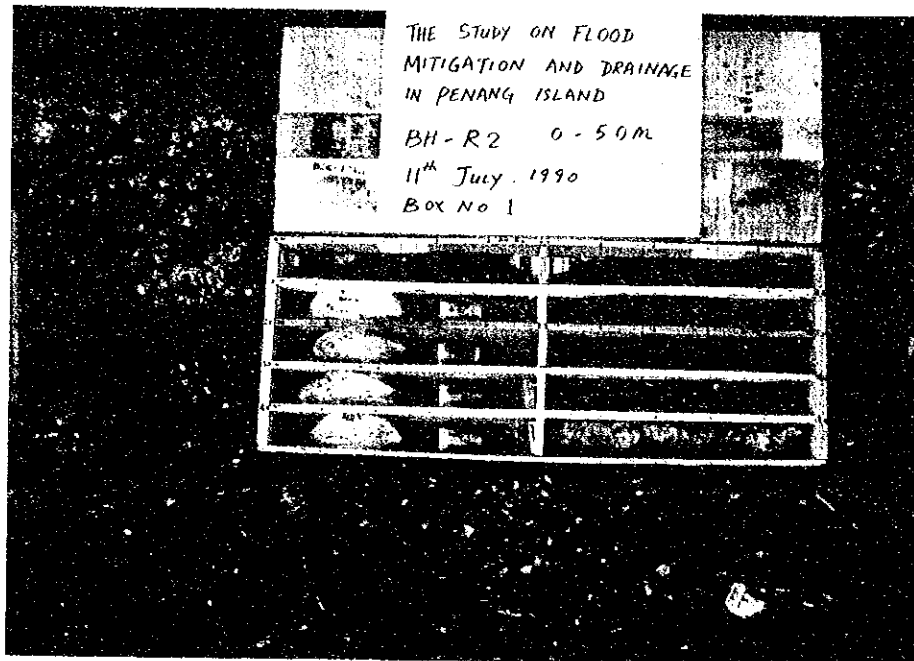 THE STUDY ON FLOOD
MITIGATION AND DRAINAGE
IN PENANG ISLAND
BH-R2 0-50M
11th July. 1990
BOX NO 1